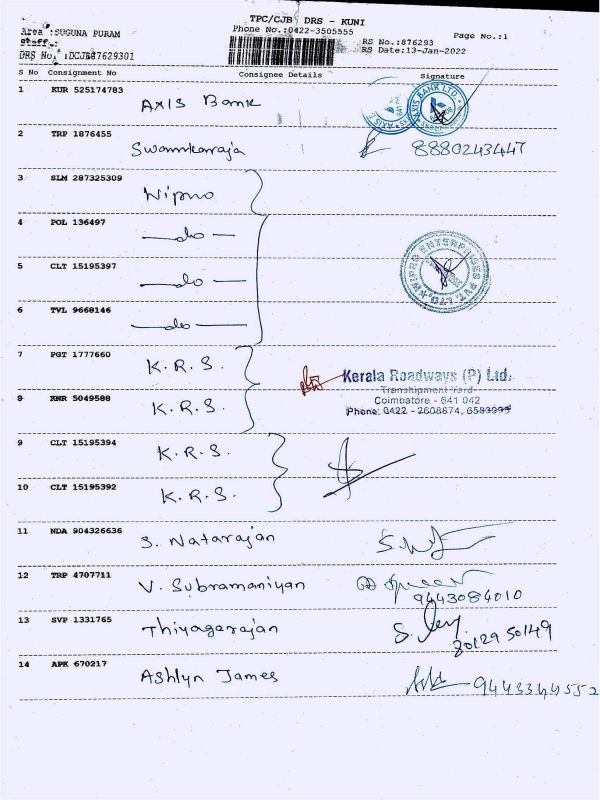 TPC/CJB DRS - KUNI
Area :SUGUNA PURAM
Phone No.:0422-3505555
Page No.:1
Staff :
RS No.:876293
DRS No. :
RS Date:13-Jan-2022
S No Consignment No Consignee Details Signature
1 KUR 525174783 Axis Bank
AXIS BANK LTD.
2 TRP 1876455 8880243447
3 SLM 287325309 Wipro
4 POL 136497 —do—
WIPRO ENTERPRISES PVT. LTD.
5 CLT 15195397 —do—
6 TVL 9668146 —do—
7 PGT 1777660 K.R.S.
Kerala Roadways (P) Ltd.
Transhipment Yard
8 KNR 5049588 K.R.S.
Coimbatore - 641 042
Phone: 0422 - 2608874,
9 CLT 15195394 K.R.S.
10 CLT 15195392 K.R.S.
11 NDA 904326636 S. Natarajan
12 TRP 4707711 V. Subramaniyan
9443084010
13 SVP 1331765 Thiyagarajan
8012950149
14 APK 670217 Ashlyn James 9443344552